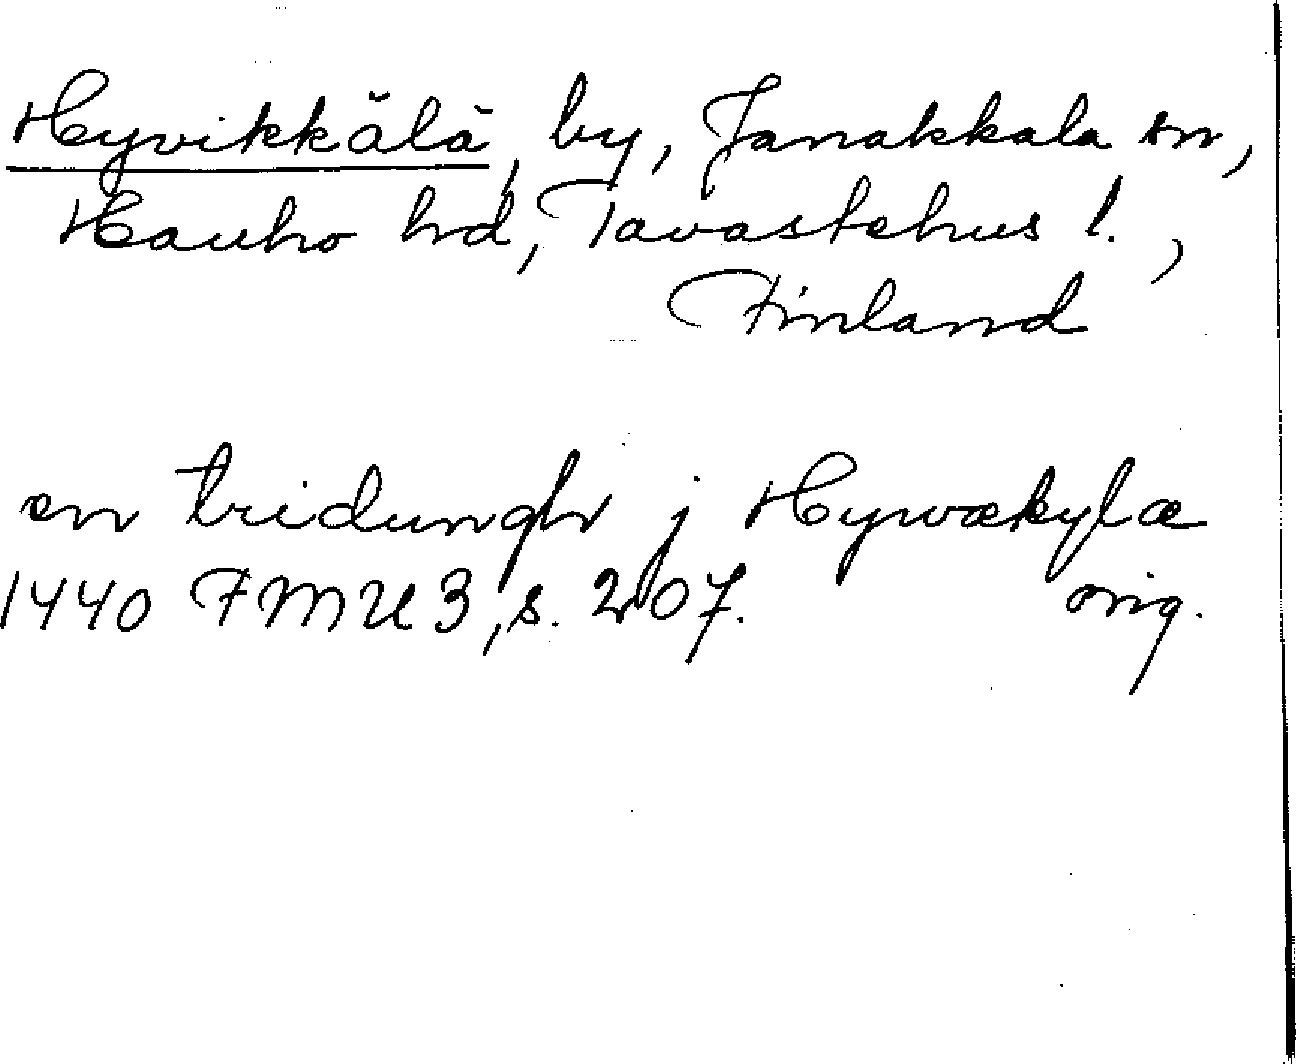 Hyvikkälä, by, Janakkala sn,
Hauho hd, Tavastehus l.,
Finland
en tridungh j Hyrwækylæ
1440 FMU 3, s. 207. orig.